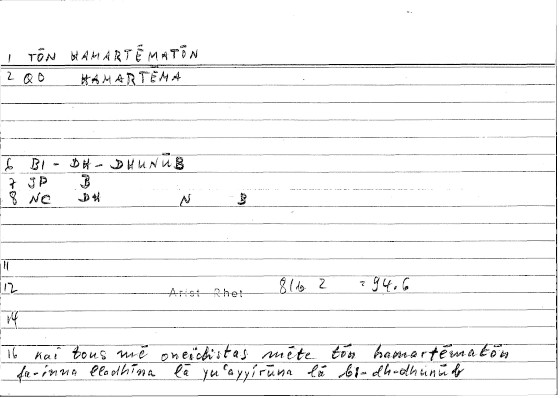 1 TŌN HAMARTĒMATŌN
2 QO HAMARTĒMA
6 BI - DH - DHUNŪB
7 JP B
8 NC DH N B
11
12 Arist Rhet 81b 2 = 94.6
14
16 kai tous mē oneidistas mēte tōn hamartēmatōn
fa-inna lladhīna lā yuʿayyirūna lā bi-dh-dhunūb